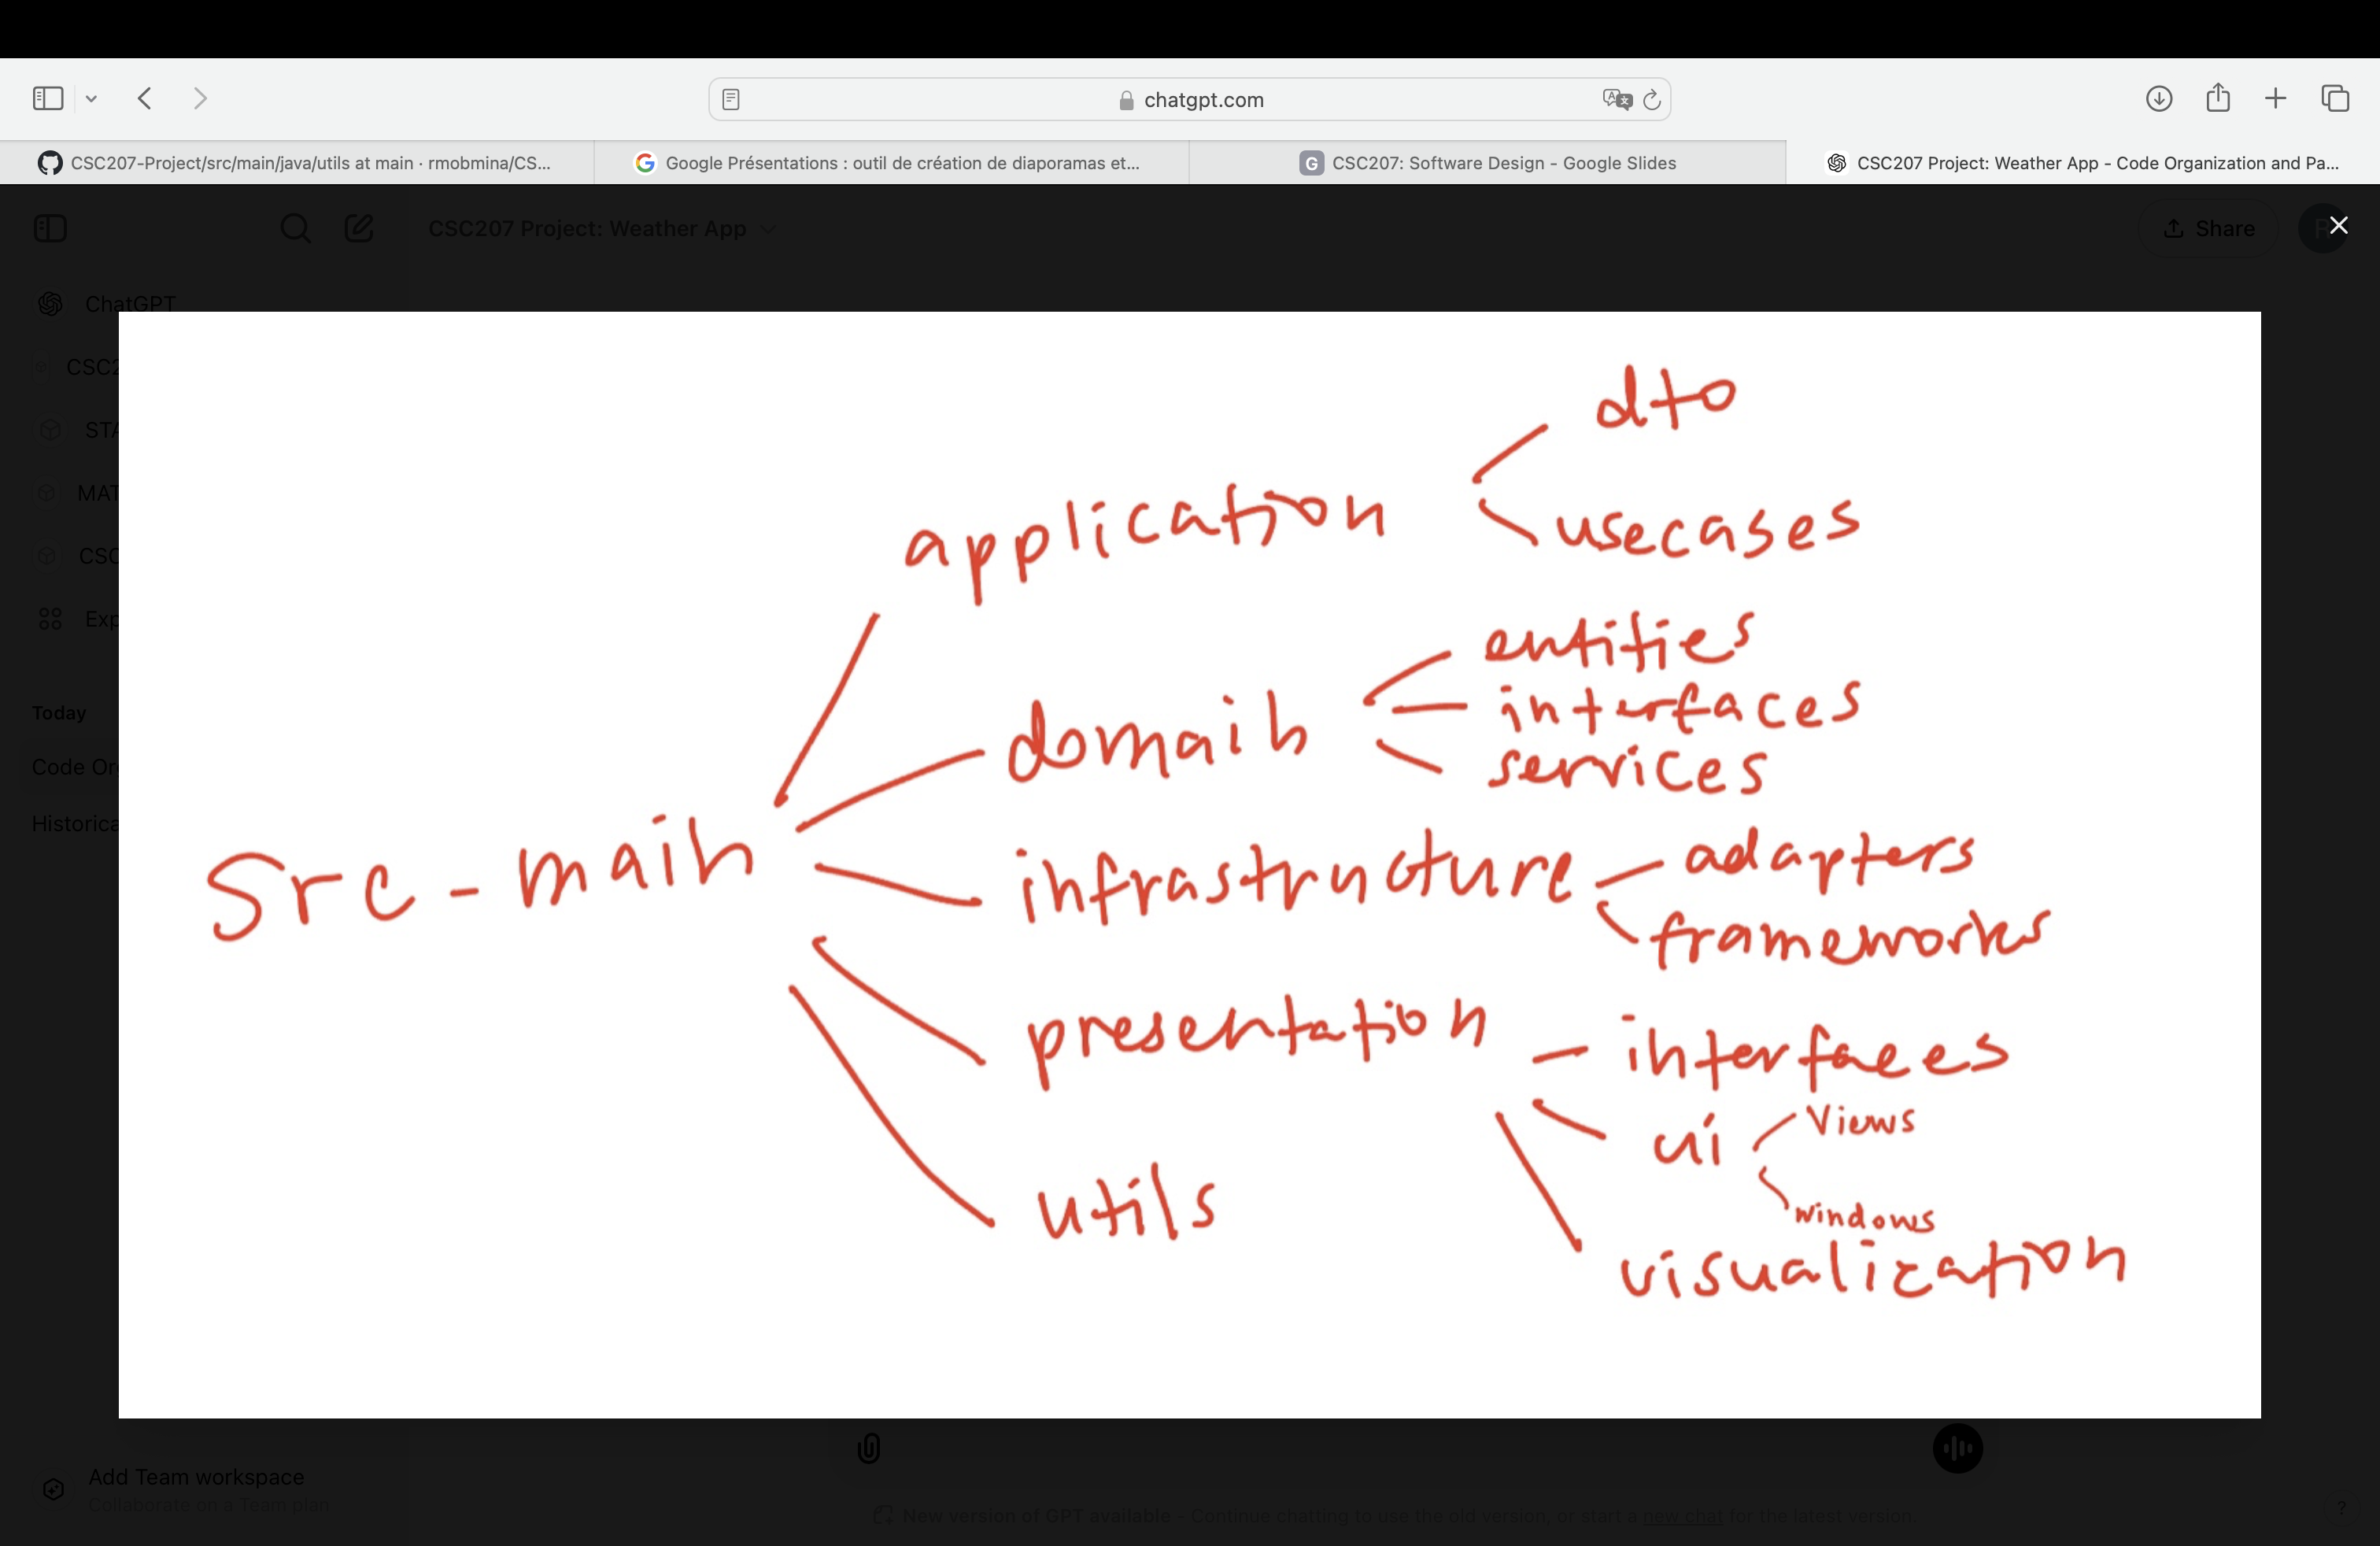 chatgpt.com
CSC207-Project/src/main/java/utils at main · rmobmina/CS...
Google Présentations : outil de création de diaporamas et...
G CSC207: Software Design - Google Slides
CSC207 Project: Weather App - Code Organization and Pa...
CSC207 Project: Weather App
Share
ChatGPT
CSC2
STA
MAT
CSC
Exp
Today
Code Org
Historica
dto
application
usecases
entities
domain
interfaces
services
Src - main
infrastructure
adapters
frameworks
presentation
interfaces
ui
Views
windows
utils
visualization
Add Team workspace
Collaborate on a Team plan
New version of GPT available - Continue chatting to use the old version, or start a new chat for the latest version.
?